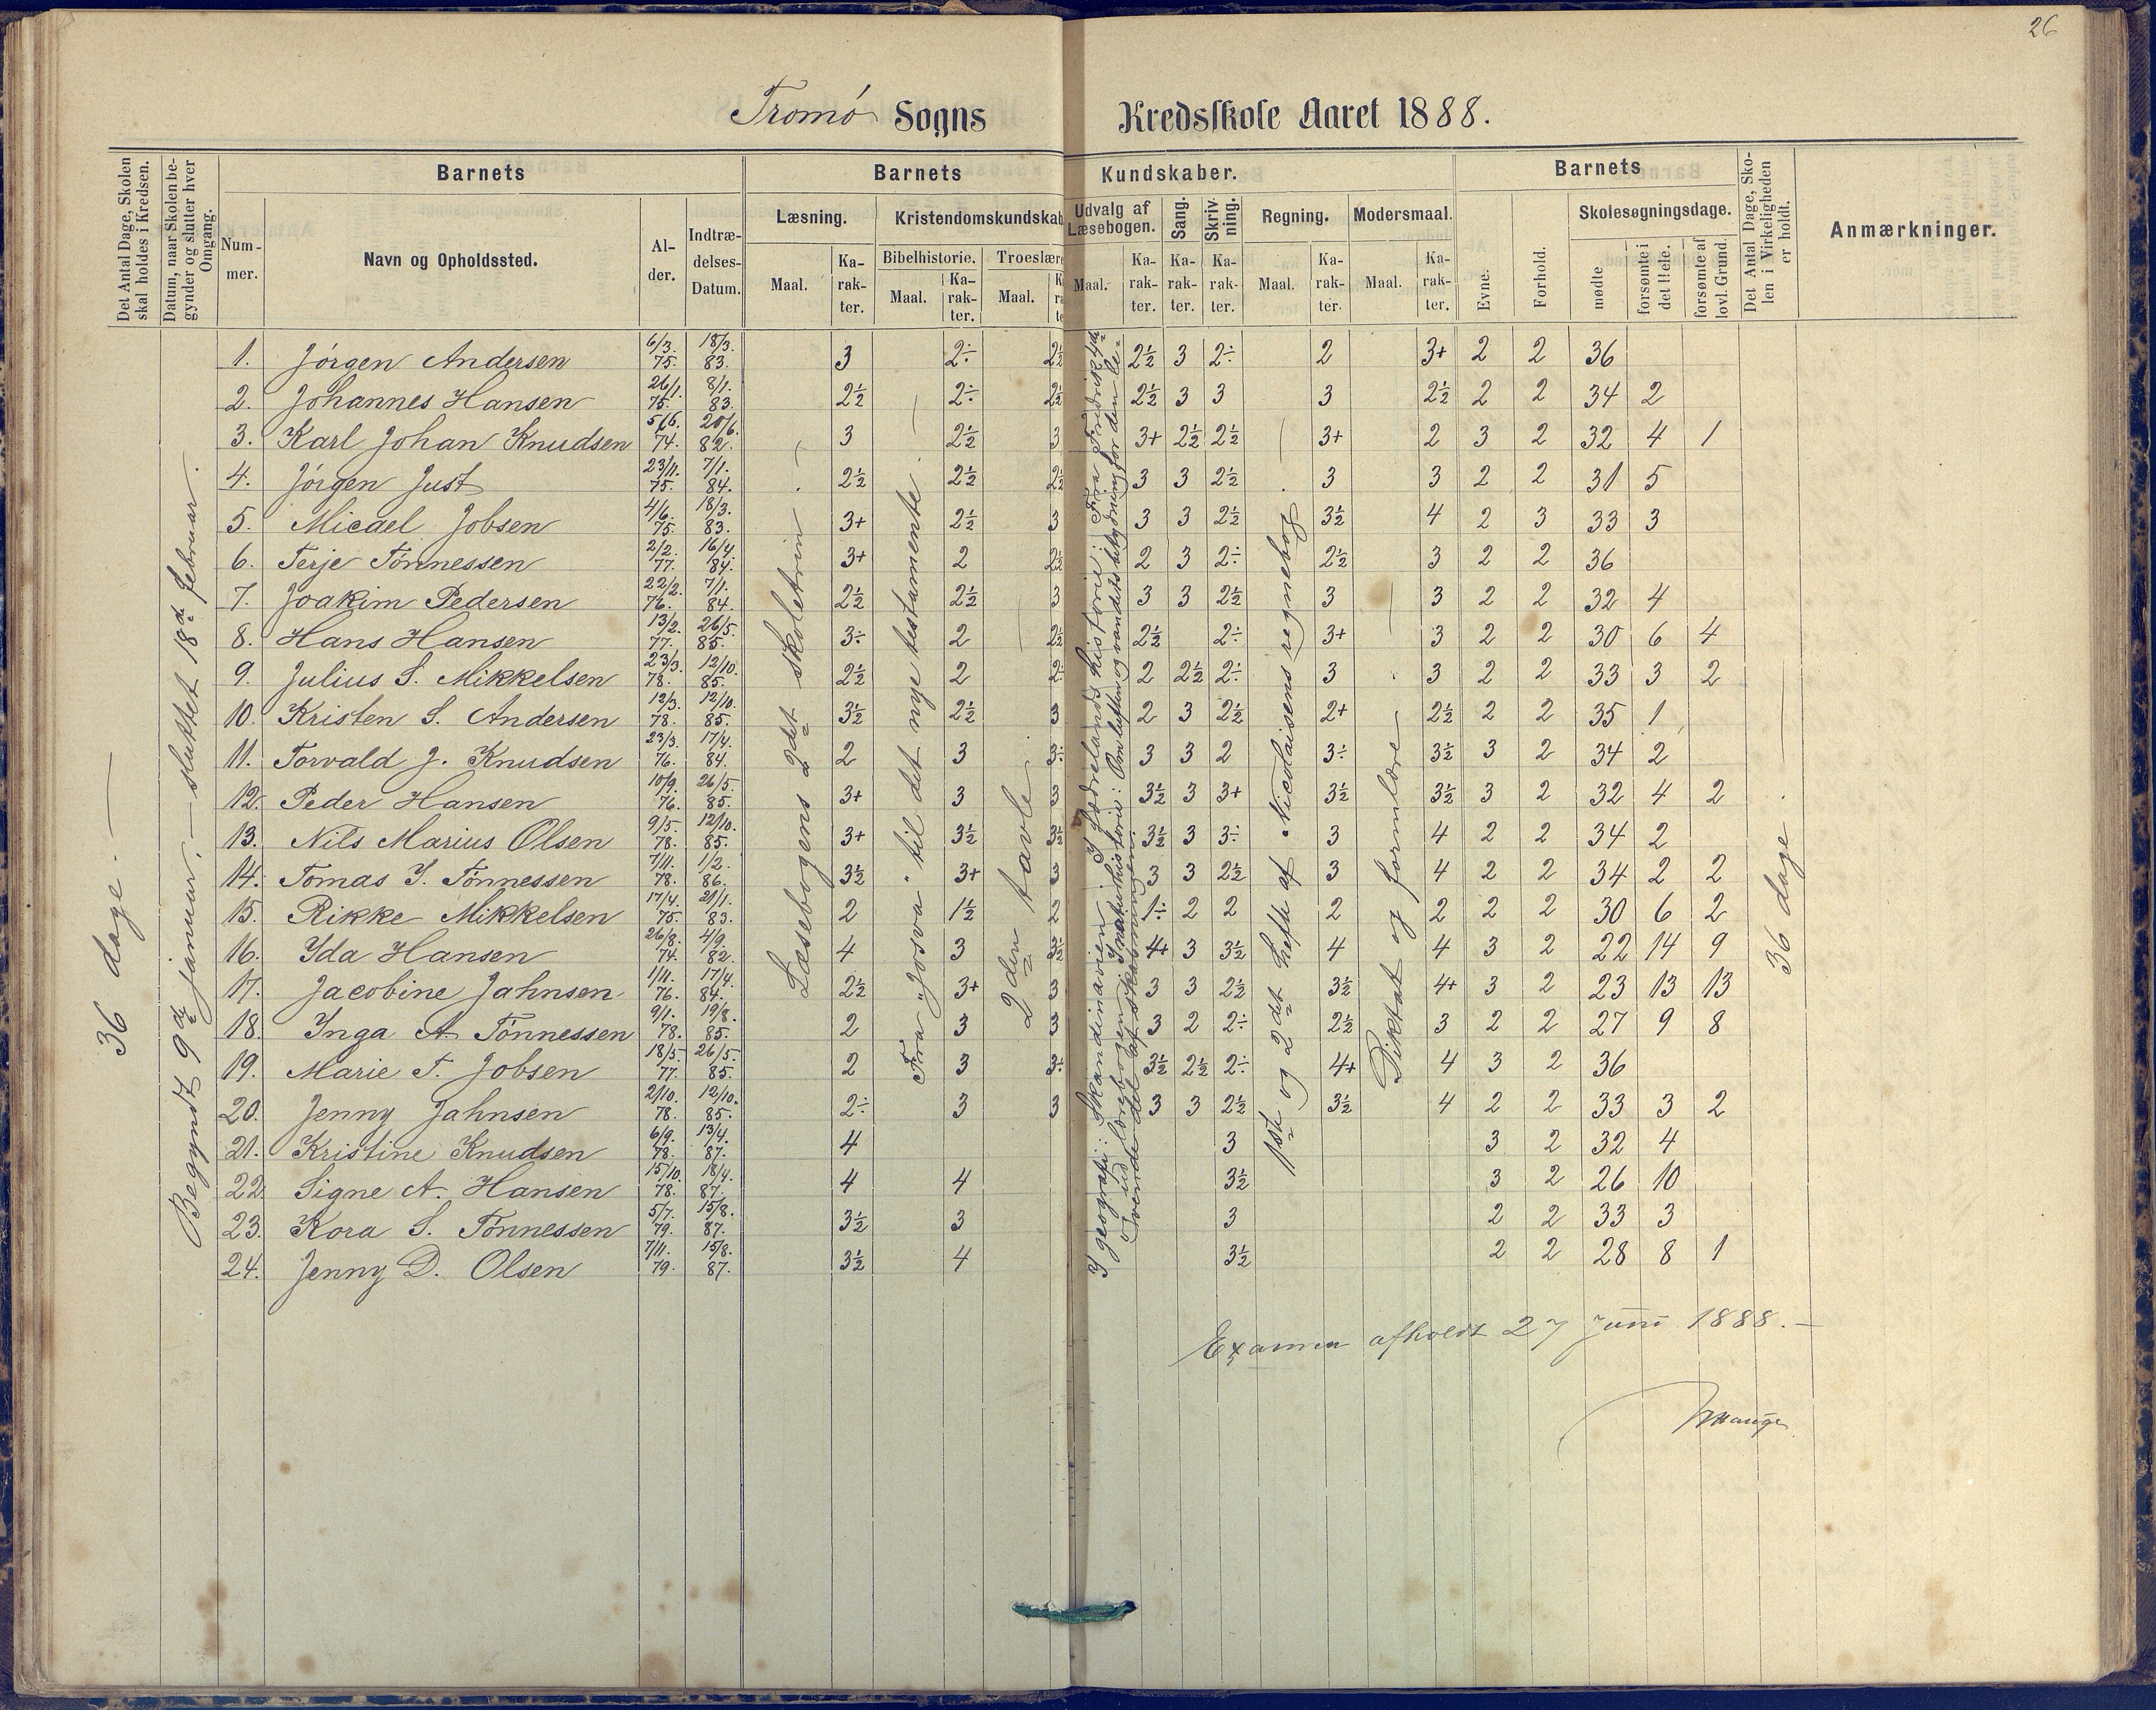 26
Tromø Sogns Kredsskole Aaret 1888.
Det Antal Dage, Skolen skal holdes i Kredsen.
Datum, naar Skolen begynder og slutter hver Omgang.
Barnets
Nummer.
Navn og Opholdssted.
Alder.
Indtrædelses-Datum.
Barnets Kundskaber.
Læsning.
Maal.
Karakter.
Kristendomskundskab
Bibelhistorie.
Maal.
Karakter.
Troeslære
Maal.
Udvalg af Læsebogen.
Maal.
Karakter.
Sang.
Karakter.
Skrivning.
Karakter.
Regning.
Maal.
Karakter.
Modersmaal.
Maal.
Karakter.
Barnets
Evne.
Forhold.
Skolesøgningsdage.
mødte
forsømte i det Hele.
forsømte af lovl. Grund.
Det Antal Dage, Skolen i Virkeligheden er holdt.
Anmærkninger.
36 dage. —
Begyndt 9de januar, — sluttet 18de februar.
Læsebogens 2det skoletrin
Fra „Josva“ til det nye testamente.
2den tavle.
I geografi: Skandinavien. I fædrelandshistorie: Fra Fredrik 4de
ud. I naturhistorie: Om luften og vandets betydning for den levende del af skabningen.
1ste og 2det hefte af Nicolaisens regnebog
Diktat og formlære
36 dage.
1. Jörgen Andersen 6/3. 75. 18/3. 83. 3 2÷ 2½ 2½ 3 2÷ 2 3+ 2 2 36
2. Johannes Hansen 26/1. 75. 8/1. 83. 2½ 2÷ 2½ 2½ 3 3 3 2½ 2 2 34 2
3. Karl Johan Knudsen 5/6. 74. 20/6. 82. 3 2½ 3 3+ 2½ 2½ 3+ 2 3 2 32 4 1
4. Jörgen Just 23/11. 75. 7/1. 84. 2½ 2½ 2½ 3 3 2½ 3 3 2 2 31 5
5. Micael Jobsen 4/6. 75. 18/3. 83. 3+ 2½ 3 3 3 2½ 3½ 4 2 3 33 3
6. Terje Tönnessen 2/2. 77. 16/4. 84. 3+ 2 2½ 2 3 2÷ 2½ 3 2 2 36
7. Joakim Pedersen 22/2. 76. 7/1. 84. 2½ 2½ 3 3 3 2½ 3 3 2 2 32 4
8. Hans Hansen 13/2. 77. 26/5. 85. 3÷ 2 2½ 2½ 2÷ 3+ 3 2 2 30 6 4
9. Julius S. Mikkelsen 23/3. 78. 12/10. 85. 2½ 2 2÷ 2 2½ 2÷ 3 3 2 2 33 3 2
10. Kristen S. Andersen 12/3. 78. 12/10. 85. 3½ 2½ 3 2 3 2½ 2+ 2½ 2 2 35 1
11. Torvald J. Knudsen 23/3. 76. 17/4. 84. 2 3 3÷ 3 3 2 3÷ 3½ 3 2 34 2
12. Peder Hansen 10/9. 76. 26/5. 85. 3+ 3 3 3½ 3 3+ 3½ 3½ 3 2 32 4 2
13. Nils Marius Olsen 9/5. 78. 12/10. 85. 3+ 3½ 3½ 3½ 3 3÷ 3 4 2 2 34 2
14. Tomas I. Tönnessen 7/11. 78. 1/2. 86. 3½ 3+ 3 3 3 2½ 3 4 2 2 34 2 2
15. Rikke Mikkelsen 17/4. 75. 21/1. 83. 2 1½ 2 1÷ 2 2 2 2 2 2 30 6 2
16. Ida Hansen 26/8. 74. 4/9. 82. 4 3 3½ 4+ 3 3½ 4 4 3 2 22 14 9
17. Jacobine Jahnsen 1/11. 76. 17/4. 84. 2½ 3+ 3 3 3 2½ 3½ 4+ 3 2 23 13 13
18. Inga A. Tönnessen 9/1. 78. 19/8. 85. 2 3 3 3 2 2÷ 2½ 3 2 2 27 9 8
19. Marie T. Jobsen 18/5. 77. 26/5. 85. 2 3 3÷ 3½ 2½ 2÷ 4+ 4 3 2 36
20. Jenny Jahnsen 2/10. 78. 12/10. 85. 2÷ 3 3 3 3 2½ 3½ 4 2 2 33 3 2
21. Kristine Knudsen 6/9. 78. 13/4. 87. 4 3 3 2 32 4
22. Signe A. Hansen 15/10. 78. 18/4. 87. 4 4 3½ 3 2 26 10
23. Kora S. Tönnessen 5/7. 79. 15/8. 87. 3½ 3 3 2 2 33 3
24. Jenny D. Olsen 7/11. 79. 15/8. 87. 3½ 4 3½ 2 2 28 8 1
Examen afholdt 27 Juni 1888. —
Hauge